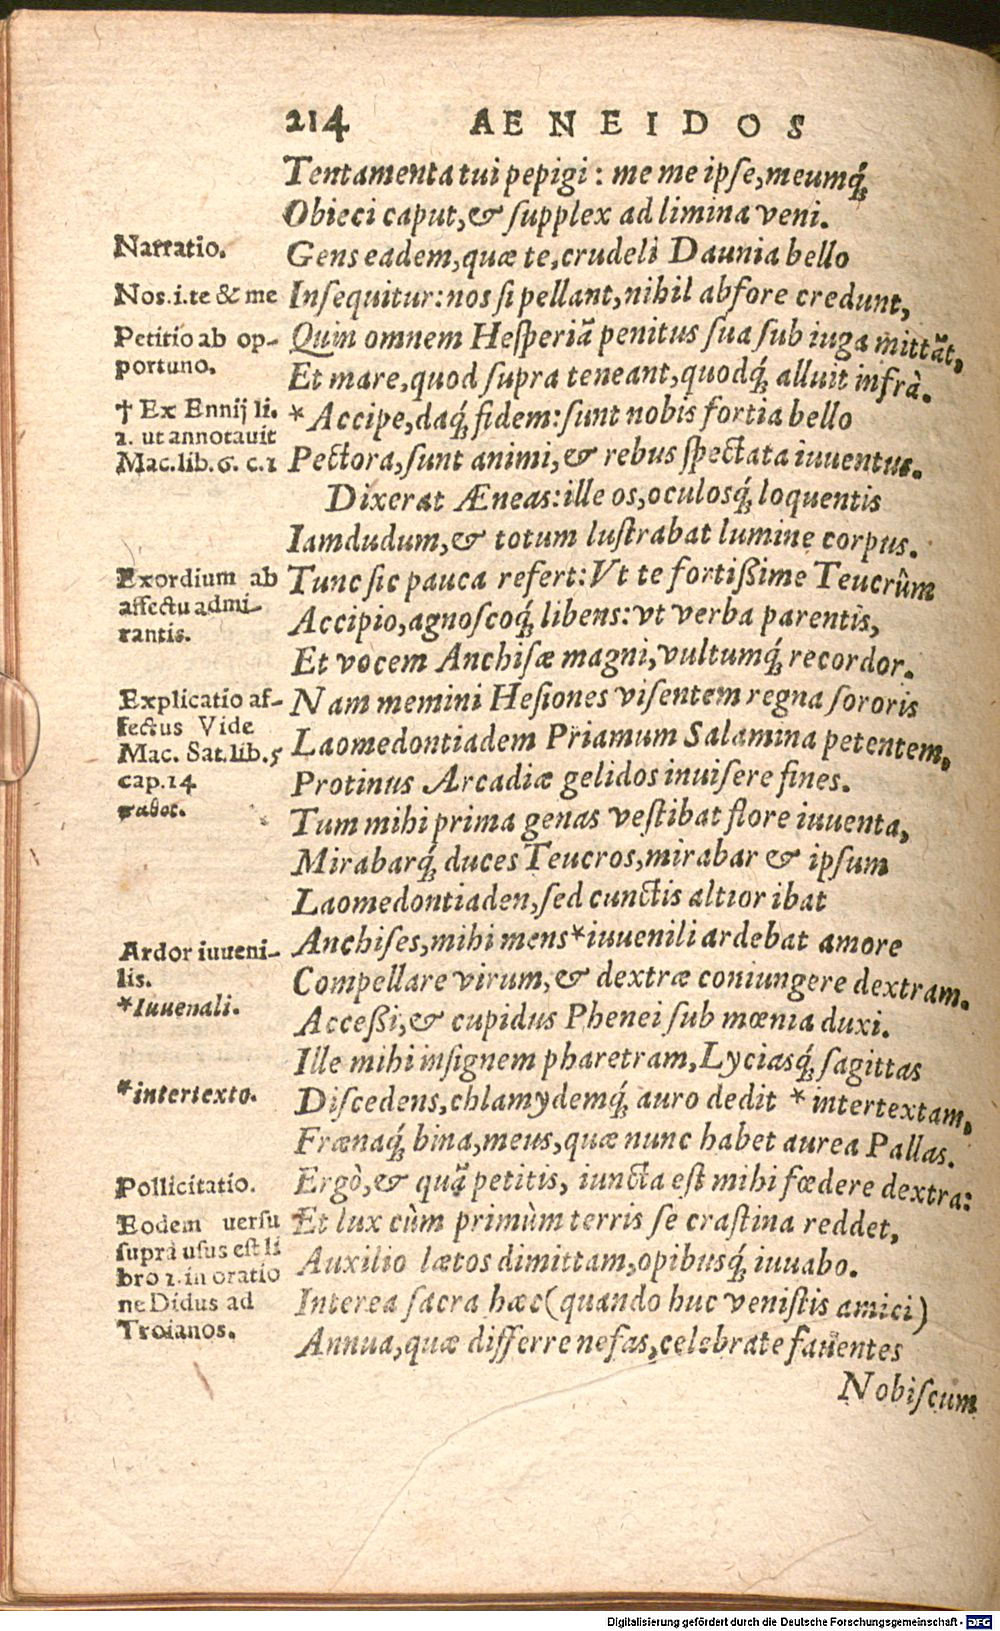 214 AENEIDOS
Tentamenta tui pepigi: me me ipse, meumq́;
Obieci caput, & supplex ad limina veni.
Narratio.
Gens eadem, quæ te, crudeli Daunia bello
Nos.i.te & me
Insequitur: nos si pellant, nihil abfore credunt,
Petitio ab op-
portuno.
Quin omnem Hesperiã penitus sua sub iuga mittãt,
Et mare, quod supra teneant, quodq́; alluit infrà.
† Ex Ennij li.
1. ut annotauit
Mac.lib.6. c.1
* Accipe, daq́; fidem: sunt nobis fortia bello
Pectora, sunt animi, & rebus spectata iuuentus.
Dixerat Æneas: ille os, oculosq́; loquentis
Iamdudum, & totum lustrabat lumine corpus.
Exordium ab
affectu admi-
rantis.
Tunc sic pauca refert: Vt te fortißime Teucrûm
Accipio, agnoscoq́; libens: vt verba parentis,
Et vocem Anchisæ magni, vultumq́; recordor.
Explicatio af-
fectus Vide
Mac. Sat.lib.5
cap.14
Nam memini Hesiones visentem regna sororis
Laomedontiadem Priamum Salamina petentem,
Protinus Arcadiæ gelidos inuisere fines.
Tum mihi prima genas vestibat flore iuuenta,
Mirabarq́; duces Teucros, mirabar & ipsum
Laomedontiaden, sed cunctis altior ibat
Ardor iuueni-
lis.
*Iuuenali.
Anchises, mihi mens *iuuenili ardebat amore
Compellare virum, & dextræ coniungere dextram.
Acceßi, & cupidus Phenei sub mœnia duxi.
Ille mihi insignem pharetram, Lyciasq́; sagittas
*intertexto.
Discedens, chlamydemq́; auro dedit * intertextam,
Frænaq́; bina, meus, quæ nunc habet aurea Pallas.
Pollicitatio.
Ergò, & quã petitis, iuncta est mihi fœdere dextra:
Eodem uersu
suprà usus est li
bro 1. in oratio
ne Didus ad
Troianos.
Et lux cùm primùm terris se crastina reddet,
Auxilio lætos dimittam, opibusq́; iuuabo.
Interea sacra hæc (quando huc venistis amici)
Annua, quæ differre nefas, celebrate fauentes
Nobiscum
Digitalisierung gefördert durch die Deutsche Forschungsgemeinschaft - DFG